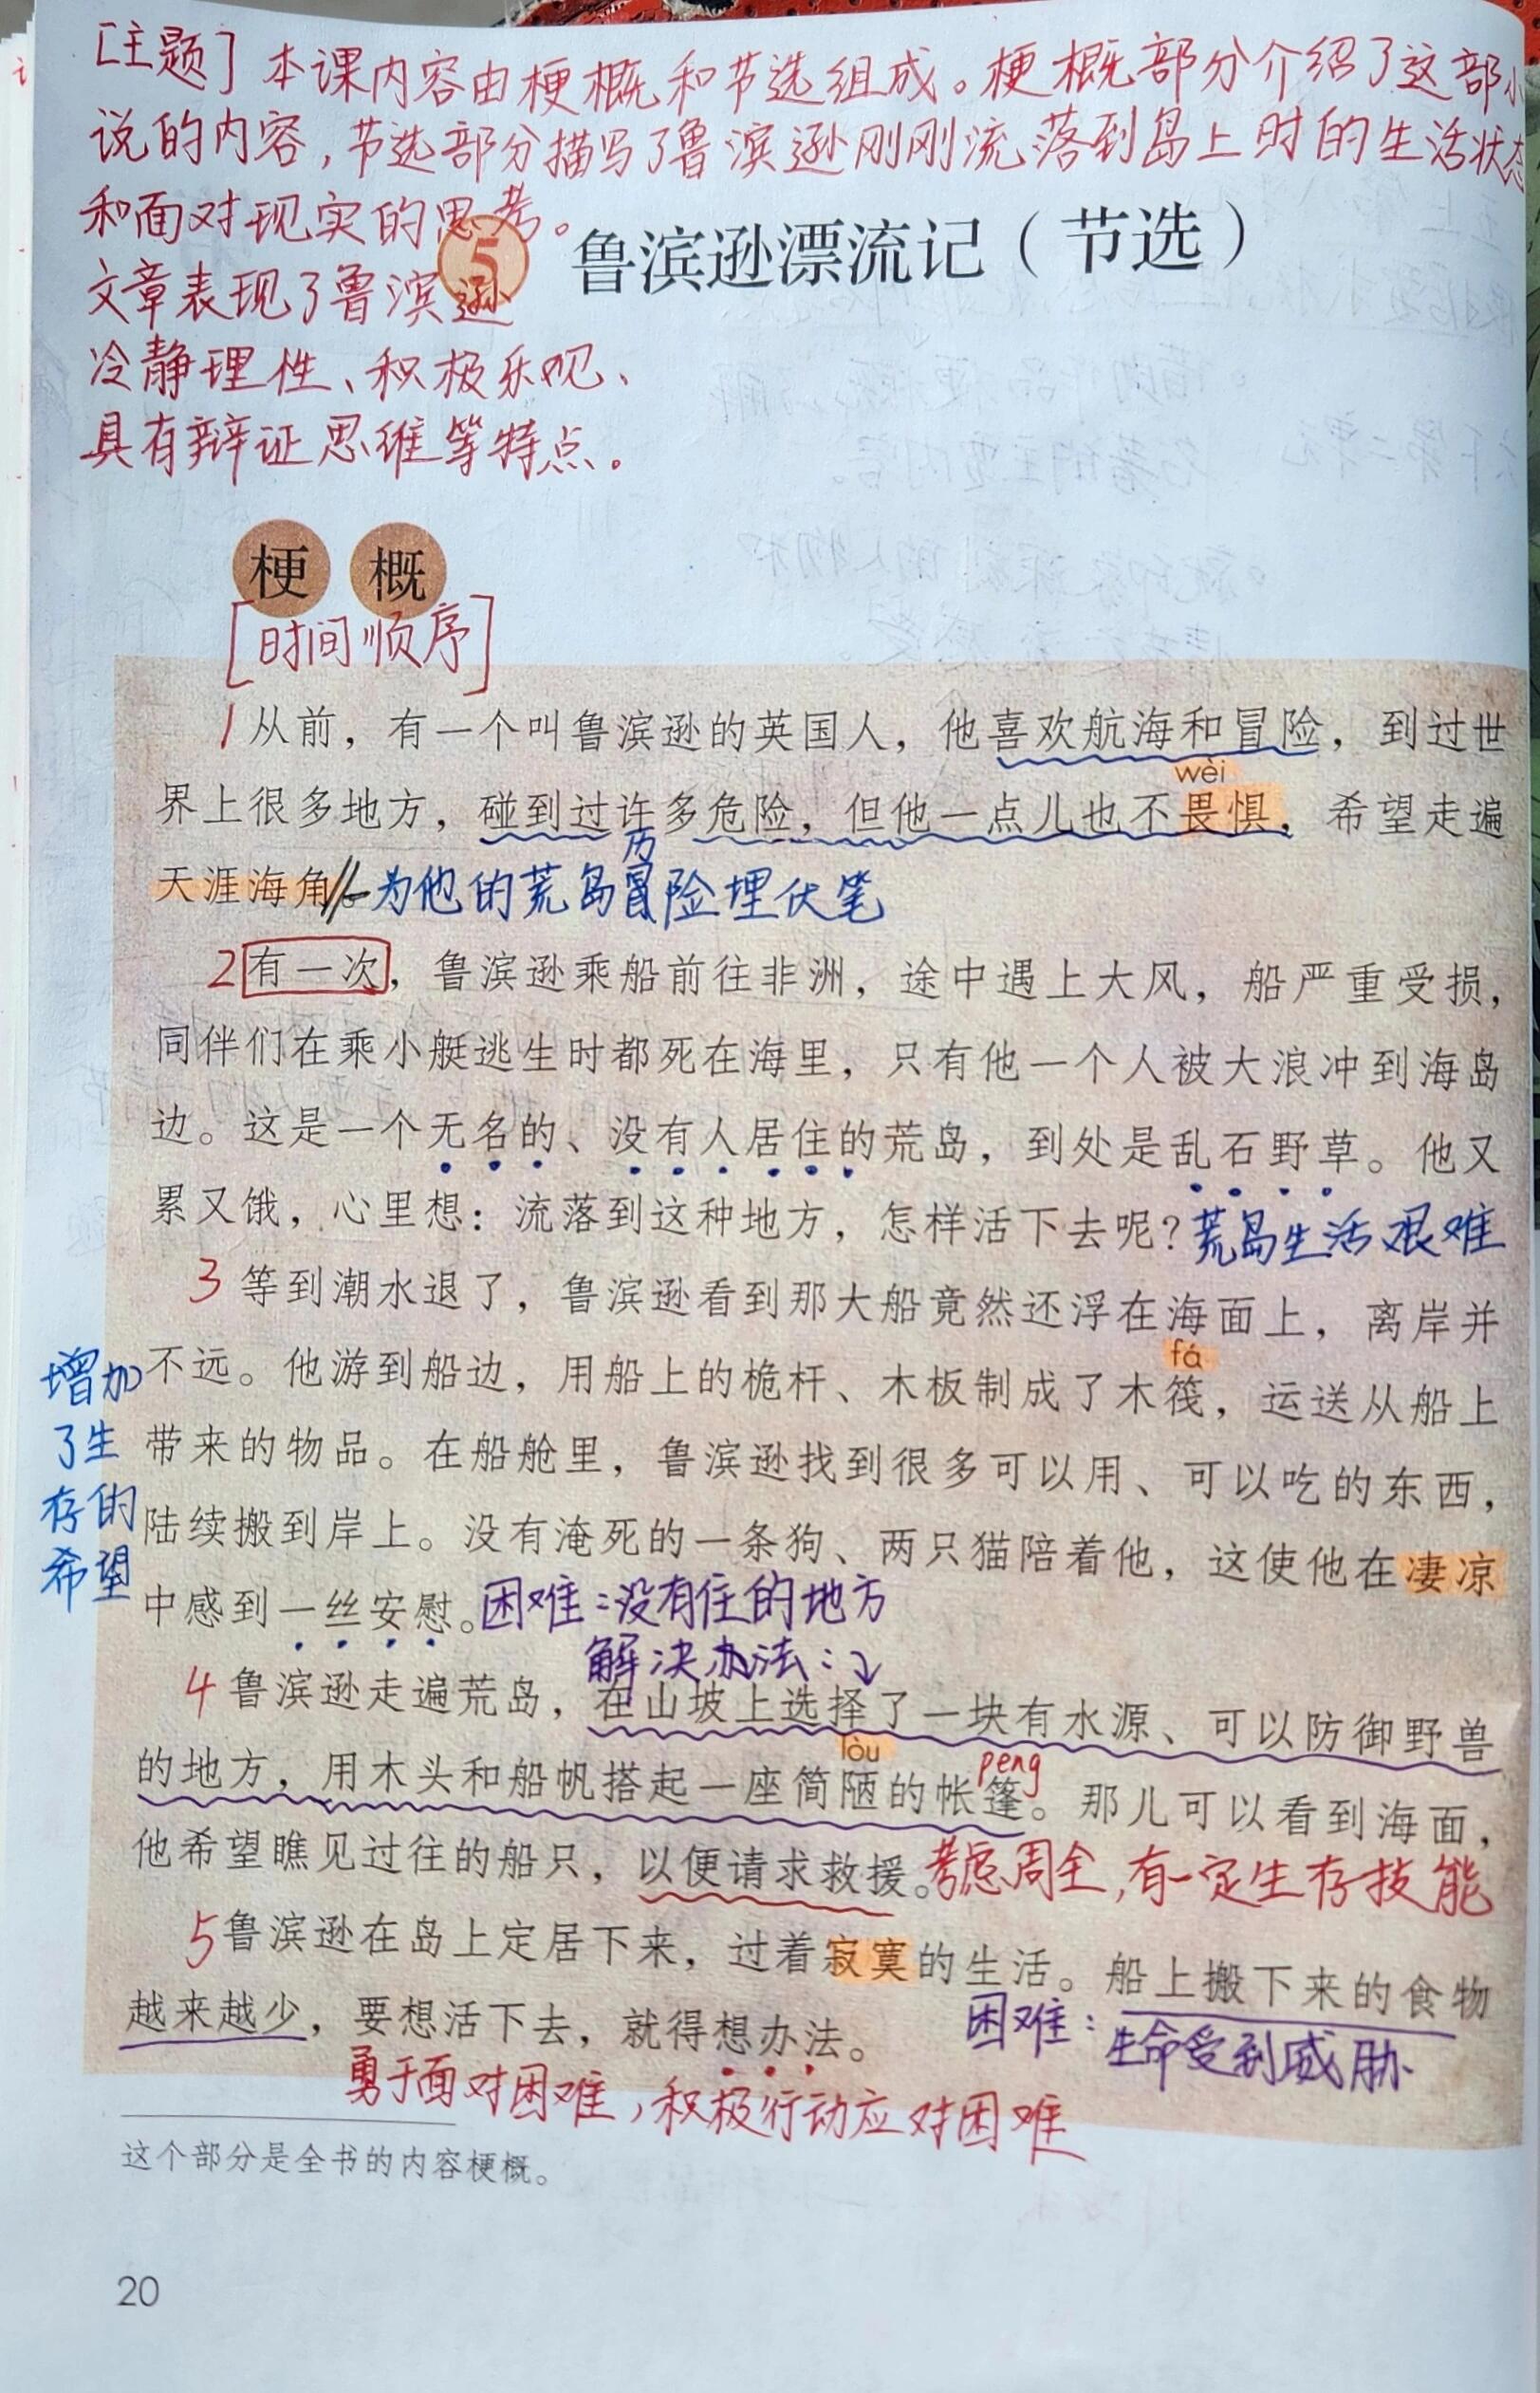 [主题] 本课内容由梗概和节选组成。梗概部分介绍了这部小
说的内容，节选部分描写了鲁滨逊刚刚流落到岛上时的生活状态
和面对现实的思考。
5 鲁滨逊漂流记（节选）
文章表现了鲁滨逊
冷静理性、积极乐观、
具有辩证思维等特点。
梗概
[时间顺序]
1 从前，有一个叫鲁滨逊的英国人，他喜欢航海和冒险，到过世
wèi
界上很多地方，碰到过许多危险，但他一点儿也不畏惧，希望走遍
历
天涯海角。为他的荒岛冒险埋伏笔
2 有一次，鲁滨逊乘船前往非洲，途中遇上大风，船严重受损，
同伴们在乘小艇逃生时都死在海里，只有他一个人被大浪冲到海岛
边。这是一个无名的、没有人居住的荒岛，到处是乱石野草。他又
累又饿，心里想：流落到这种地方，怎样活下去呢？荒岛生活艰难
3 等到潮水退了，鲁滨逊看到那大船竟然还浮在海面上，离岸并
fá
不远。他游到船边，用船上的桅杆、木板制成了木筏，运送从船上
带来的物品。在船舱里，鲁滨逊找到很多可以用、可以吃的东西，
陆续搬到岸上。没有淹死的一条狗、两只猫陪着他，这使他在凄凉
中感到一丝安慰。困难：没有住的地方
增加
了生
存的
希望
解决办法：↓
4 鲁滨逊走遍荒岛，在山坡上选择了一块有水源、可以防御野兽
lòu
peng
的地方，用木头和船帆搭起一座简陋的帐篷。那儿可以看到海面，
他希望瞧见过往的船只，以便请求救援。考虑周全，有一定生存技能
5 鲁滨逊在岛上定居下来，过着寂寞的生活。船上搬下来的食物
越来越少，要想活下去，就得想办法。
困难：生命受到威胁
勇于面对困难，积极行动应对困难
这个部分是全书的内容梗概。
20